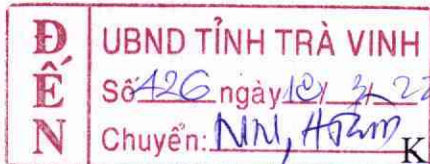 ĐẾN
UBND TỈNH TRÀ VINH
Số 426 ngày 3-22
Chuyển: NN,
K